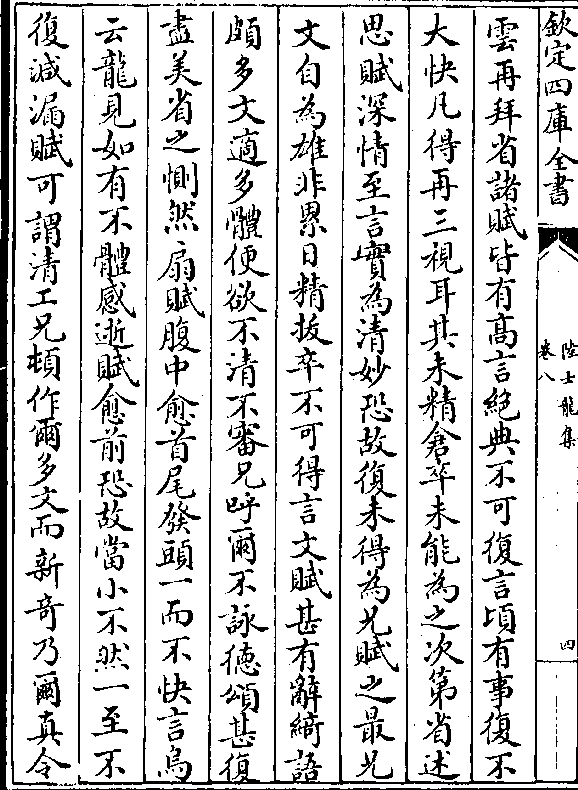 欽定四庫全書
陸士龍集
卷八
四
雲再拜省諸賦皆有高言絶典不可復言頃有事復不
大快凡得再三視耳其未精倉卒未能為之次第省述
思賦深情至言實為清妙恐故復未得為兄賦之最兄
文自為雄非累日精拔卒不可得言文賦甚有辭綺語
頗多文適多體便欲不清不審兄呼爾不詠徳頌甚復
盡美省之惻然扇賦腹中愈首尾發頭一而不快言烏
云龍見如有不體感逝賦愈前恐故當小不然一至不
復減漏賦可謂清工兄頓作爾多文而新竒乃爾真令